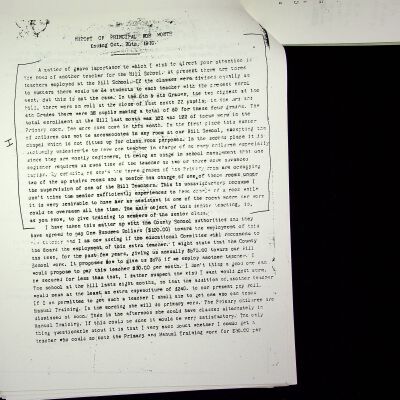 REPORT OF PRINCIPAL FOR MONTH
Ending Oct. 20th, 1920.
A matter of grave importance to which I wish to direct your attention is
the need of another teacher for the Hill School. At present there are three
teachers employed at the Hill School. If the classes were divided equally as
to numbers there would be 44 students to each teacher with the present enrol
ment. But this is not the case. In the 5th & 6th Grades, the two highest at the
Hill, there were on roll at the close of last month 22 pupils; in the 3rd and
4th Grades there were 38 pupils making a total of 60 for these four grades. The
total enrollment at the Hill last month was 132 and of these were in the
Primary room. The more have come in this month. In the first place this number
of children can not be accommodated in any room at our Hill School, excepting the
which is not fitted up for class room purposes. In the second place it is
to have one teacher in charge of so many children especially
since they are mostly beginners, it being an axiom in school management that one
beginner requires as much time of the teacher as two or three more advanced
pupils. the three grades of the Primary room are occupying
two of the up stairs rooms and a senior has charge of one of these rooms under
the supervision of one of the Hill Teachers. This is unsatisfactory because I
don't think the senior sufficiently experienced to take charge of a room while
it is very desirable to have her an assistant in one of the rooms where her work
could be overseen all the time. The main object of this senior teaching, is,
as you know, to give training to members of the senior class.
I have taken this matter up with the County School authorities and they
have agreed to pay One Hundred Dollars ($100.00) toward the employment of this
teacher and I am now asking if the educational Committee will recommend to
the Board the employment of this extra teacher. I might state that the County
has, for the past few years, giving us annually $575.00 toward our Hill
School work. It proposes now to give us $675 if we employ another teacher. I
would propose to pay this teacher $30.00 per month. I don't think a good one can
be secured for less than that, I rather suspect the kind I want would cost more.
The school at the Hill lasts eight months, so that the addition of another teacher
would mean at the least an extra expenditure of $240. to our present pay roll.
If I am permitted to get such a teacher I shall aim to get one who can teach
Manual Training. In the morning she will do primary work. The Primary children are
dismissed at noon. Then in the afternoon she could have classes alternately in
Manual Training. If this could be done it would be very satisfactory. The only
thing questionable about it is that I very much doubt whether I could get a
teacher who could do both the Primary and Manual Training work for $30.00 per